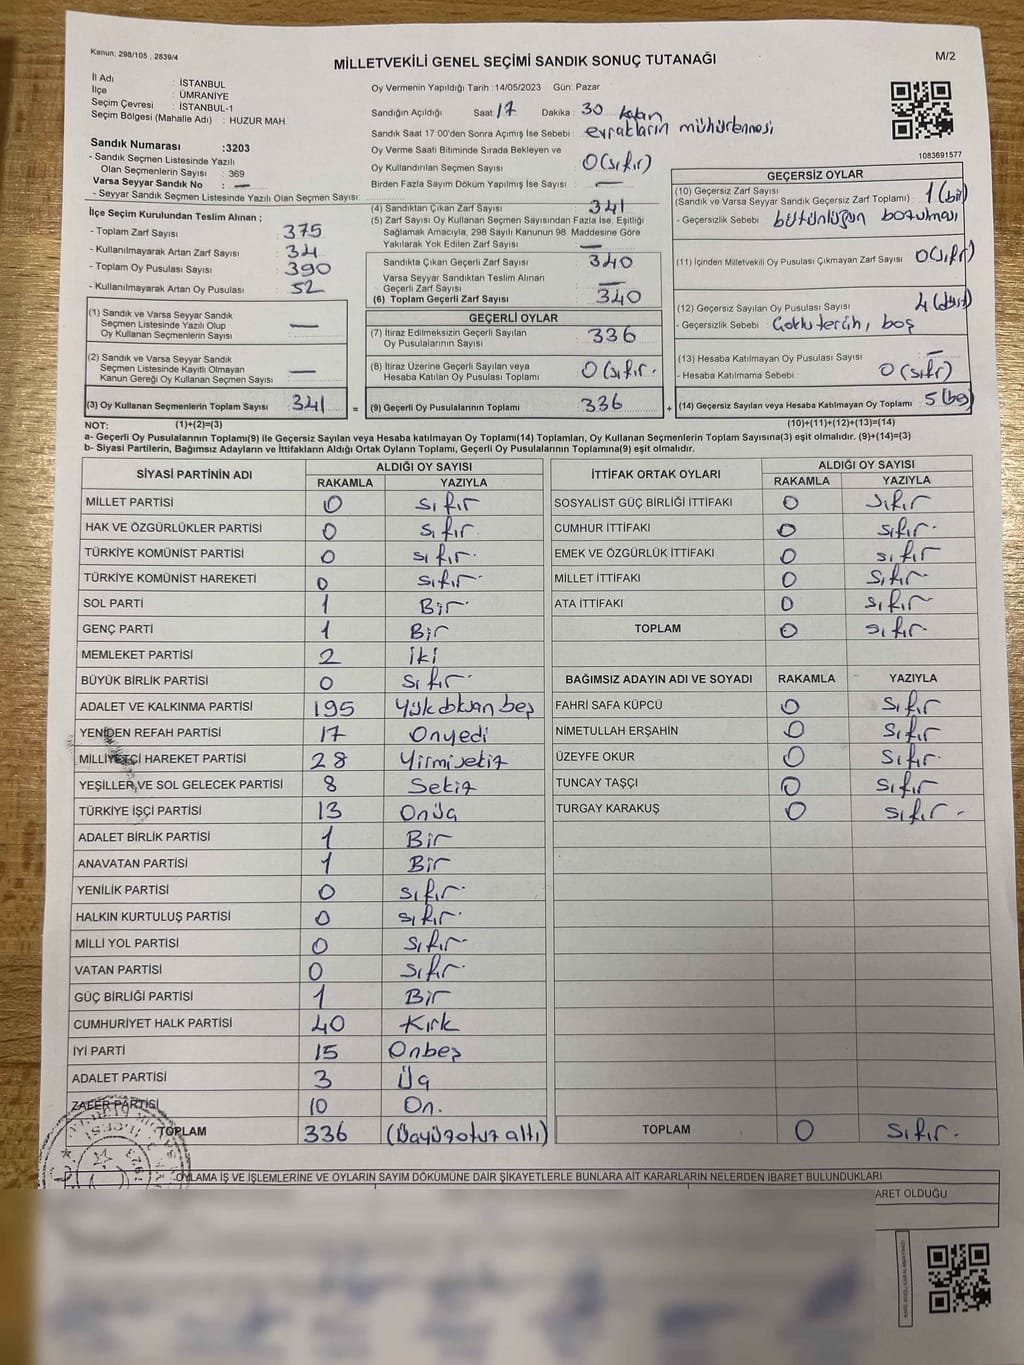 Kanun; 298/105 , 2839/4
MİLLETVEKİLİ GENEL SEÇİMİ SANDIK SONUÇ TUTANAĞI
M/2
İl Adı : İSTANBUL
İlçe : ÜMRANİYE
Seçim Çevresi : İSTANBUL-1
Seçim Bölgesi (Mahalle Adı) : HUZUR MAH.
Sandık Numarası :3203
- Sandık Seçmen Listesinde Yazılı
Olan Seçmenlerin Sayısı : 369
Varsa Seyyar Sandık No : —
- Seyyar Sandık Seçmen Listesinde Yazılı Olan Seçmen Sayısı:
İlçe Seçim Kurulundan Teslim Alınan ;
- Toplam Zarf Sayısı : 375
- Kullanılmayarak Artan Zarf Sayısı : 34
- Toplam Oy Pusulası Sayısı : 390
- Kullanılmayarak Artan Oy Pusulası : 52
(1) Sandık ve Varsa Seyyar Sandık
Seçmen Listesinde Yazılı Olup
Oy Kullanan Seçmenlerin Sayısı : —
(2) Sandık ve Varsa Seyyar Sandık
Seçmen Listesinde Kayıtlı Olmayan
Kanun Gereği Oy Kullanan Seçmen Sayısı : —
(3) Oy Kullanan Seçmenlerin Toplam Sayısı : 341
Oy Vermenin Yapıldığı Tarih : 14/05/2023 Gün: Pazar
Sandığın Açıldığı Saat : 17 Dakika : 30 kalan
Sandık Saat 17:00'den Sonra Açımış İse Sebebi : evrakların mühürlenmesi
Oy Verme Saati Bitiminde Sırada Bekleyen ve
Oy Kullandırılan Seçmen Sayısı : 0 (sıfır)
Birden Fazla Sayım Döküm Yapılmış İse Sayısı : —
(4) Sandıktan Çıkan Zarf Sayısı : 341
(5) Zarf Sayısı Oy Kullanan Seçmen Sayısından Fazla İse, Eşitliği
Sağlamak Amacıyla; 298 Sayılı Kanunun 98. Maddesine Göre
Yakılarak Yok Edilen Zarf Sayısı : —
Sandıkta Çıkan Geçerli Zarf Sayısı : 340
Varsa Seyyar Sandıktan Teslim Alınan
Geçerli Zarf Sayısı : —
(6) Toplam Geçerli Zarf Sayısı : 340
GEÇERLİ OYLAR
(7) İtiraz Edilmeksizin Geçerli Sayılan
Oy Pusulalarının Sayısı : 336
(8) İtiraz Üzerine Geçerli Sayılan veya
Hesaba Katılan Oy Pusulası Toplamı : 0 (sıfır.
= (9) Geçerli Oy Pusulalarının Toplamı : 336
1083691577
GEÇERSİZ OYLAR
(10) Geçersiz Zarf Sayısı
(Sandık ve Varsa Seyyar Sandık Geçersiz Zarf Toplamı) : 1 (bir)
- Geçersizlik Sebebi : bütünlüğün bozulması
(11) İçinden Milletvekili Oy Pusulası Çıkmayan Zarf Sayısı : 0 (sıfır)
(12) Geçersiz Sayılan Oy Pusulası Sayısı : 4 (dört)
- Geçersizlik Sebebi : Çoklu tercih, boş
(13) Hesaba Katılmayan Oy Pusulası Sayısı : —
- Hesaba Katılmama Sebebi : 0 (sıfır)
+ (14) Geçersiz Sayılan veya Hesaba Katılmayan Oy Toplamı : 5 (beş)
NOT: (1)+(2)=(3) (10)+(11)+(12)+(13)=(14)
a- Geçerli Oy Pusulalarının Toplamı(9) ile Geçersiz Sayılan veya Hesaba katılmayan Oy Toplamı(14) Toplamları, Oy Kullanan Seçmenlerin Toplam Sayısına(3) eşit olmalıdır. (9)+(14)=(3)
b- Siyasi Partilerin, Bağımsız Adayların ve İttifakların Aldığı Ortak Oyların Toplamı, Geçerli Oy Pusulalarının Toplamına(9) eşit olmalıdır.
SİYASİ PARTİNİN ADI ALDIĞI OY SAYISI
RAKAMLA YAZIYLA
MİLLET PARTİSİ 0 sıfır
HAK VE ÖZGÜRLÜKLER PARTİSİ 0 sıfır.
TÜRKİYE KOMÜNİST PARTİSİ 0 sıfır.
TÜRKİYE KOMÜNİST HAREKETİ 0 sıfır.
SOL PARTİ 1 Bir.
GENÇ PARTİ 1 Bir
MEMLEKET PARTİSİ 2 iki
BÜYÜK BİRLİK PARTİSİ 0 sıfır.
ADALET VE KALKINMA PARTİSİ 195 Yüzdoksan beş
YENİDEN REFAH PARTİSİ 17 Onyedi
MİLLİYETÇİ HAREKET PARTİSİ 28 Yirmisekiz
YEŞİLLER VE SOL GELECEK PARTİSİ 8 Sekiz
TÜRKİYE İŞÇİ PARTİSİ 13 Onüç
ADALET BİRLİK PARTİSİ 1 Bir
ANAVATAN PARTİSİ 1 Bir
YENİLİK PARTİSİ 0 sıfır.
HALKIN KURTULUŞ PARTİSİ 0 sıfır.
MİLLİ YOL PARTİSİ 0 sıfır.
VATAN PARTİSİ 0 sıfır.
GÜÇ BİRLİĞİ PARTİSİ 1 Bir
CUMHURİYET HALK PARTİSİ 40 Kırk
İYİ PARTİ 15 Onbeş
ADALET PARTİSİ 3 Üç
ZAFER PARTİSİ 10 On.
TOPLAM 336 (Üçyüzotuz altı)
İTTİFAK ORTAK OYLARI ALDIĞI OY SAYISI
RAKAMLA YAZIYLA
SOSYALİST GÜÇ BİRLİĞİ İTTİFAKI 0 sıfır
CUMHUR İTTİFAKI 0 sıfır.
EMEK VE ÖZGÜRLÜK İTTİFAKI 0 sıfır
MİLLET İTTİFAKI 0 sıfır.
ATA İTTİFAKI 0 sıfır
TOPLAM 0 sıfır.
BAĞIMSIZ ADAYIN ADI VE SOYADI RAKAMLA YAZIYLA
FAHRİ SAFA KÜPCÜ 0 sıfır
NİMETULLAH ERŞAHİN 0 sıfır
ÜZEYFE OKUR 0 sıfır.
TUNCAY TAŞÇI 0 sıfır
TURGAY KARAKUŞ 0 sıfır.
TOPLAM 0 sıfır.
OYLAMA İŞ VE İŞLEMLERİNE VE OYLARIN SAYIM DÖKÜMÜNE DAİR ŞİKAYETLERLE BUNLARA AİT KARARLARIN NELERDEN İBARET BULUNDUKLARI
ARET OLDUĞU